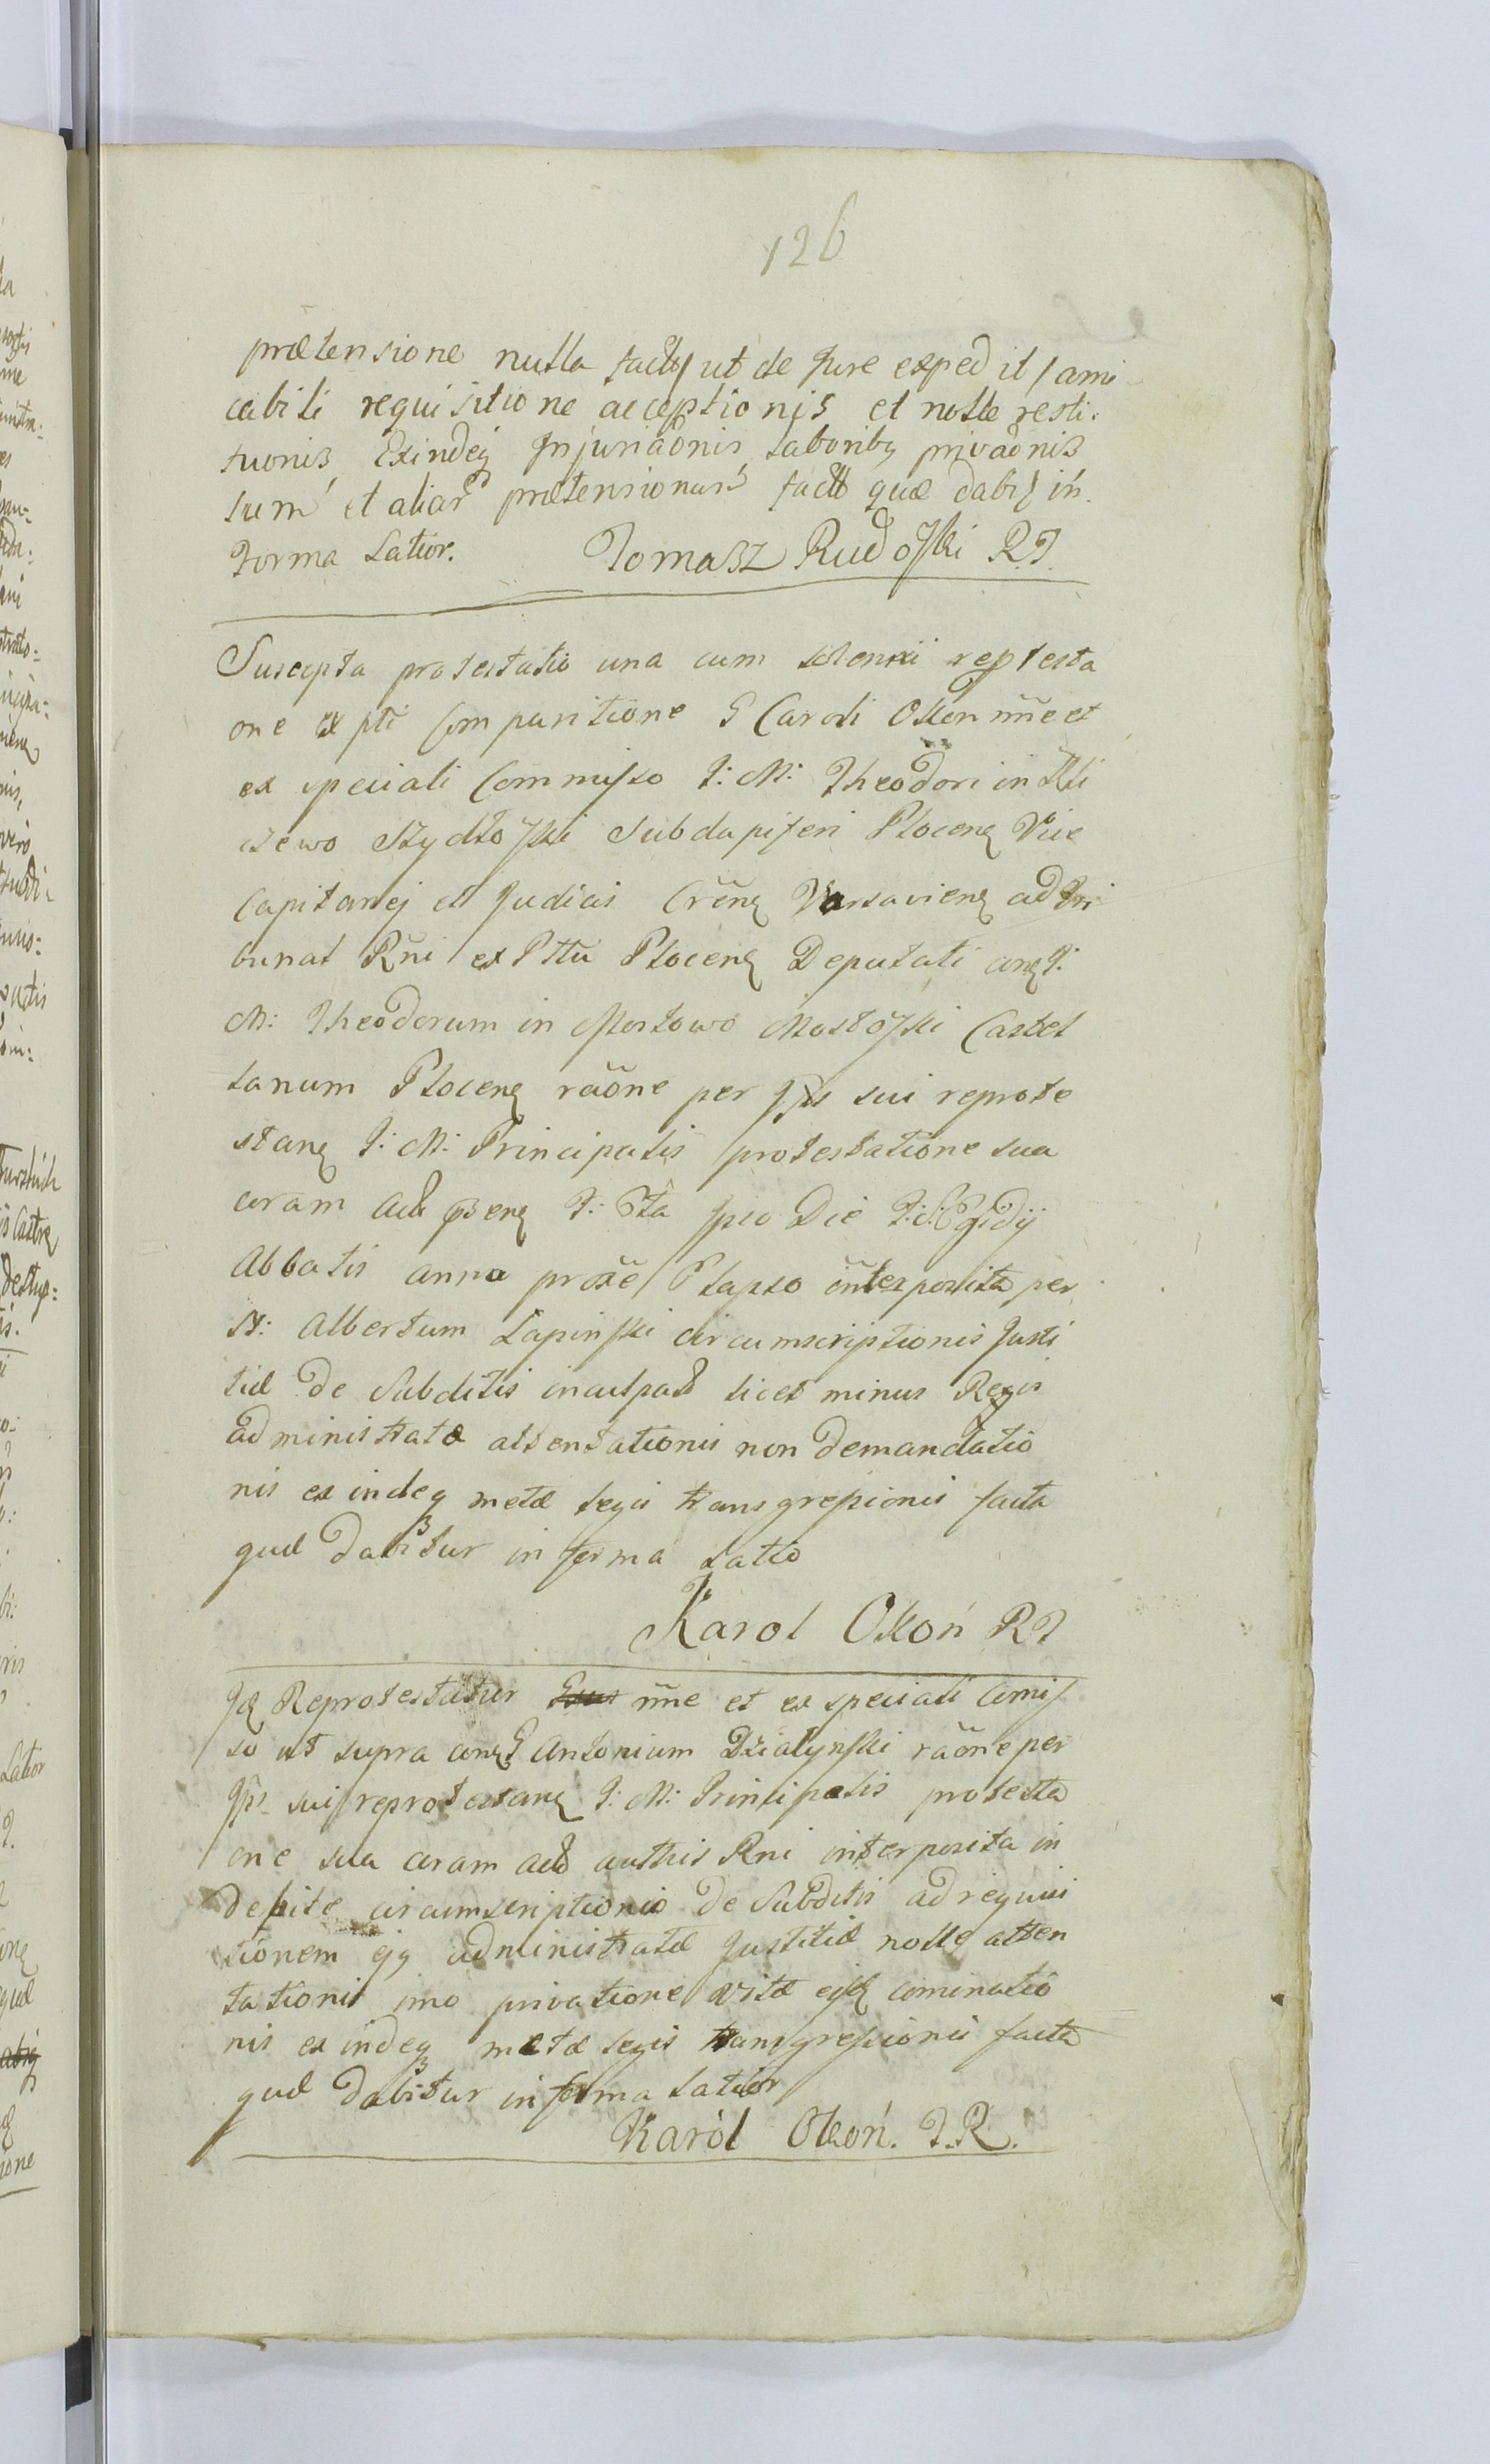 126
prætensione nulla facta ut de Jure exped it / ami
cabili requisitione acceptionis et nolle resti:
tuonis, Exindeq Injuriãonis laboribq privãonis
sum et aliar prætensionum facto quæ dabit in
forma Latior. Tomasz Rudoſki R.J.
Suscepta protestatio una cum solenni reptesta
one ex pti Comparitione G Caroli Okon mñe et
ex speciali Commiſso J: M: Theodori in
czewo Szydłoſki Subdapiferi Plocenq Vice
Capitanej et Judicis Crẽnq Varsavienq ad Tri
bunal Rñi ex Pttu Plocenq Deputati conq J:
M: Theodorum in Mostowo Mostoſki Castel
lanum Plocenq rãone per Jps sui reprote
stanq J: M: Principalis protestatione sua
coram act J: Die J: S: Egidij
Abbatis anno proxe Elapso interposita per
N: Albertum Lapinſki circumscriptionis Justi
tiæ de Subditis inculpat licet minus Regis
administratæ attentationis non demandatio
nis exindeq metæ legis transgreſsionis facta
quæ dabitur in forma Latio
Karol Okoń RJ
Jd Reprotestatur mñe et ex speciali Comiſ
so ut supra conq G Antonium Działynſki rãone per
Jps sui reprotestanq J: M: Principalis protesta
one sua coram act authis Rni interposita in
debite circumscriptionis de Subditis ad requisi
tionem ejq administratæ Justitiæ nolle atten
tationis imo privatione vitæ ejſq cominatio
nis exindeq metæ legis transgreſsionis facta
quæ dabitur in forma latior
Karól Okoń. J.R.